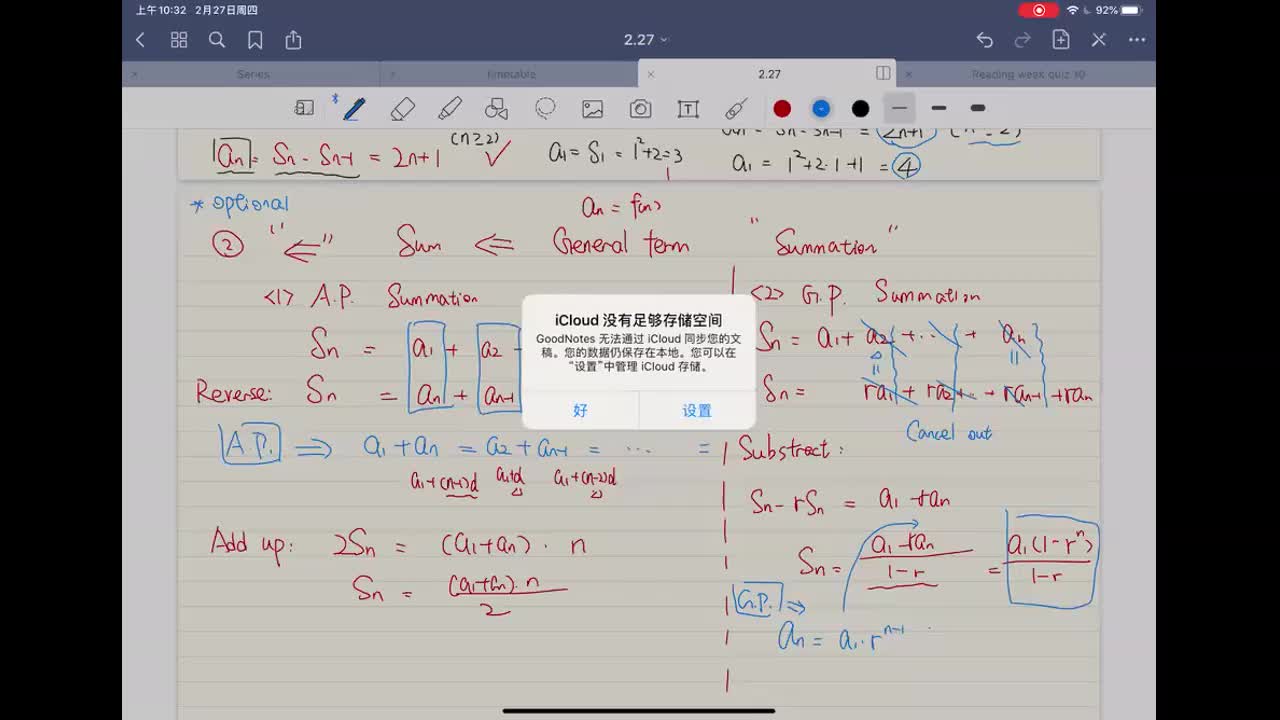 上午10:32 2月27日周四
92%
2.27
Series
timetable
2.27
Reading week quiz 10
an = Sn - Sn-1 = 2n+1 (n≥2) ✓
a1 = S1 = 1²+2=3
a1 = 1²+2·1+1 = 4
* optional
an = f(n)
② "⇐" Sum ⇐ General term "Summation"
<1> A.P. Summation
Sn = a1 + a2
Reverse: Sn = an + an-1
A.P. ⇒ a1+an = a2+an-1 = ... =
a1+(n-1)d a1+d a1+(n-2)d
Add up: 2Sn = (a1+an) · n
Sn = (a1+an)·n / 2
<2> G.P. Summation
Sn = a1 + a2 + ... + an
Sn = ra1 + ra2 + ... + ran-1 + ran
Cancel out
Substract:
Sn - rSn = a1 - ran
Sn = a1 - ran / 1-r = a1(1-r^n) / 1-r
G.P. ⇒
an = a1·r^n-1
iCloud 没有足够存储空间
GoodNotes 无法通过 iCloud 同步您的文
稿。您的数据仍保存在本地。您可以在
“设置”中管理 iCloud 存储。
好 设置